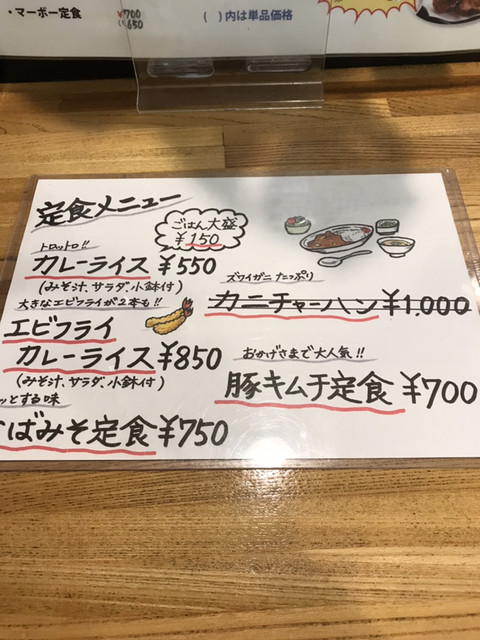 ・マーボー定食 ¥700
650
( )内は単品価格
定食メニュー
ごはん大盛
¥150
トロットロ!!
カレーライス ¥550
(みそ汁、サラダ、小鉢付)
大きなエビフライが2本も!!
エビフライ
カレーライス ¥850
(みそ汁、サラダ、小鉢付)
っとする味
ばみそ定食 ¥750
ズワイガニ たっぷり
カニチャーハン ¥1,000
おかげさまで大人気!!
豚キムチ定食 ¥700